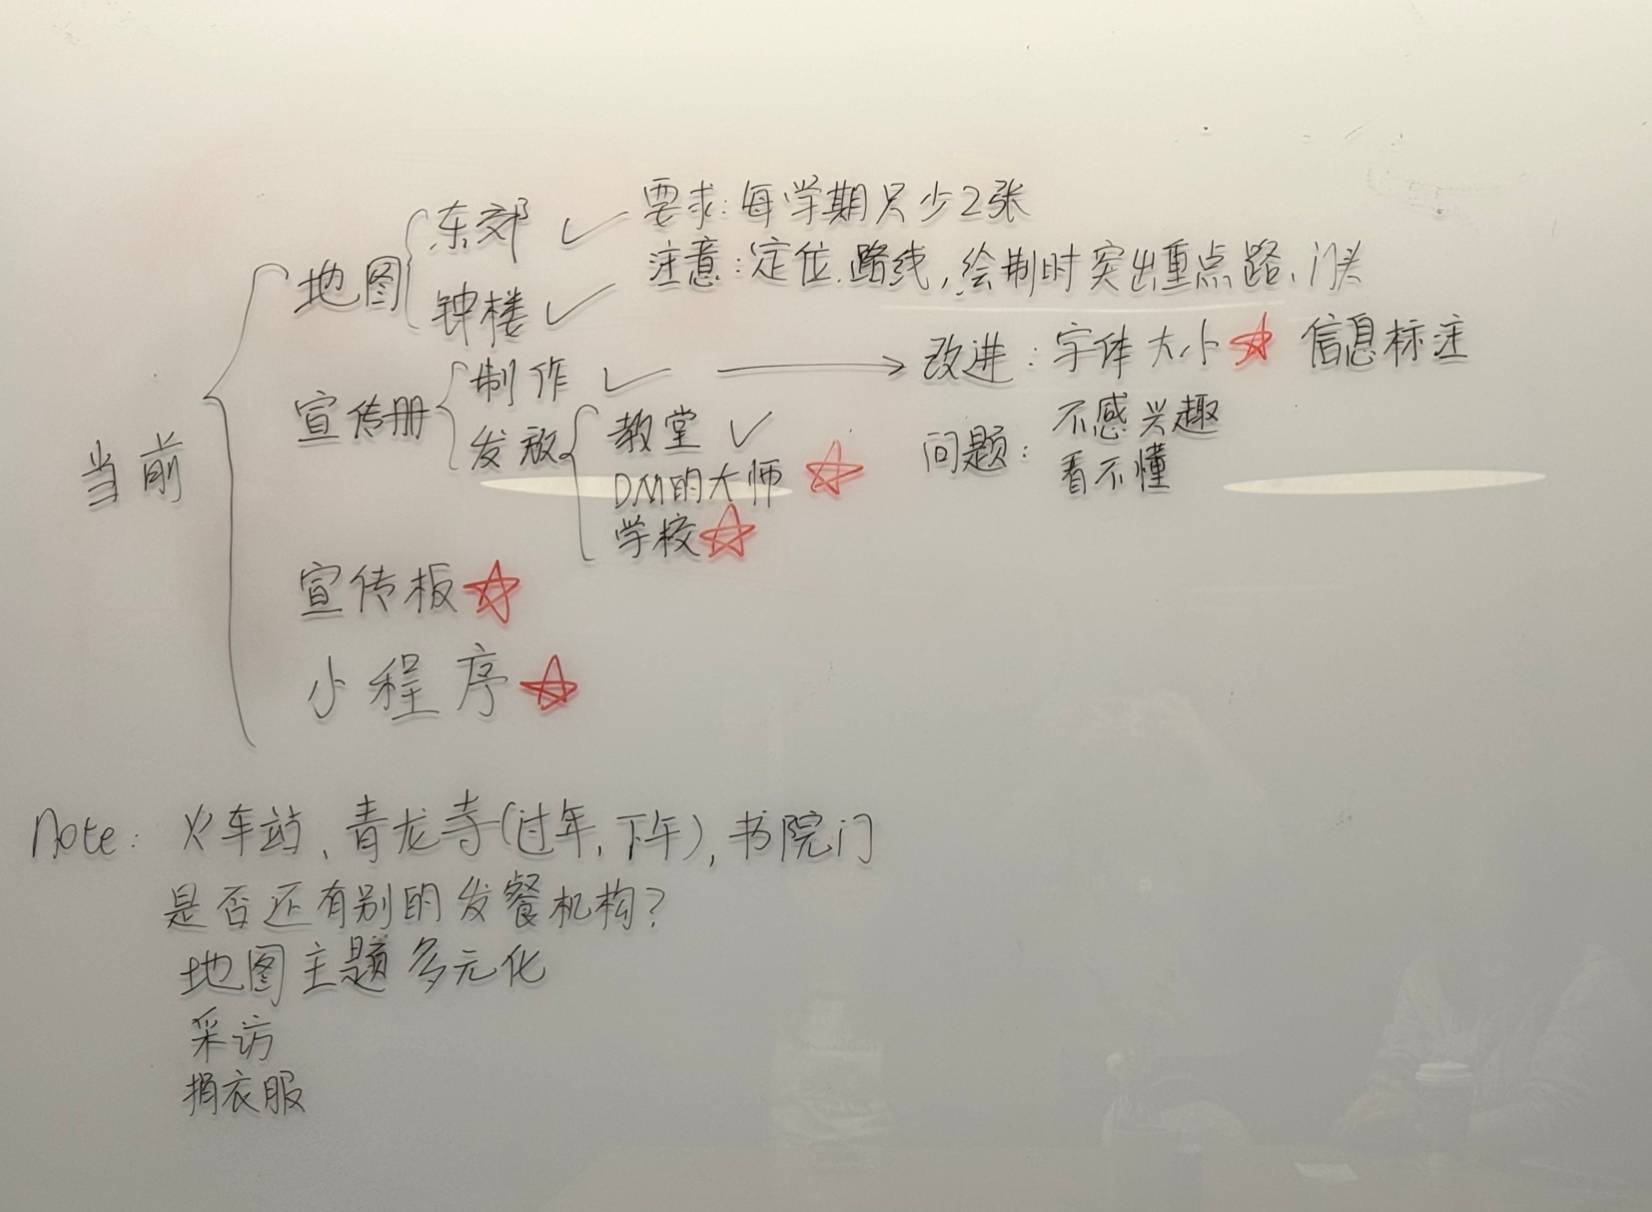 当前
地图
东郊 ✓
钟楼 ✓
要求：每学期只少2张
注意：定位、路线，绘制时突出重点路、门头
宣传册
制作 ✓ → 改进：字体大小☆ 信息标注
发放
教堂 ✓
DM的大师 ☆
学校☆
问题：不感兴趣
看不懂
宣传板☆
小程序☆
Note：火车站、青龙寺(过年，下午)，书院门
是否还有别的发餐机构？
地图主题多元化
采访
捐衣服